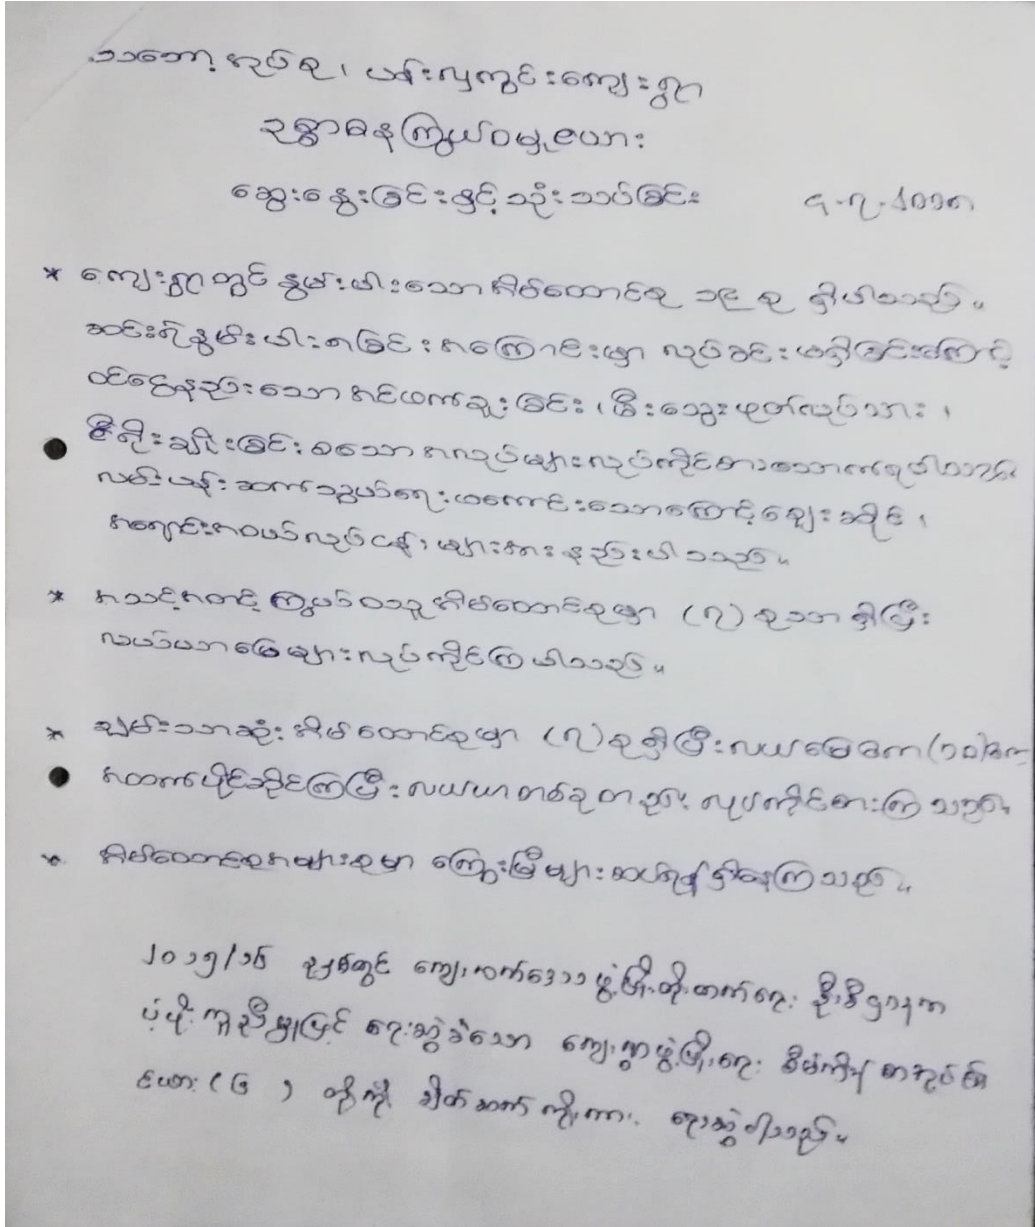 သဘော့အုပ်စု၊ ပန်းလှကွင်းကျေးရွာ
ဥစ္စာဓနကြွယ်ဝမှုဇယား
ဆွေးနွေးခြင်းနှင့်သုံးသပ်ခြင်း ၄-၇-၂၀၁၈
* ကျေးရွာတွင် နွမ်းပါးသောအိမ်ထောင်စု ၁၉ စု ရှိပါသည်။
ဆင်းရဲနွမ်းပါးတခြင်းအကြောင်းမှာ လုပ်ခင်းမရှိခြင်းကြောင့်
ဝင်ငွေနည်းသော အင်ဖက်ချူးခြင်း၊ မီးသွေးဖုတ်လုပ်သား၊
စီးရိုးချိုးခြင်းစသောအလုပ်များလုပ်ကိုင်စားသောက်ရပါသည်။
လမ်းပန်းဆက်သွယ်ရေးမကောင်းသောကြောင့်ဈေးဆိုင်၊
အရောင်းအဝယ်လုပ်ငန်းများအားနည်းပါသည်။
* အသင့်အတင့်ကြွယ်ဝသူအိမ်ထောင်စုမှာ (၇) စုသာ ရှိပြီး
လယ်ယာမြေများလုပ်ကိုင်ကြပါသည်။
* ချမ်းသာဆုံးအိမ်ထောင်စုမှာ (၇) စုရှိပြီးလယမြေဧက (၁၀) ဧက
အထက်ပိုင်ဆိုင်ကြပြီးလယယာတစ်ခုတည်း လုပ်ကိုင်စားကြသည်။
* အိမ်ထောင်စုအများစုမှာ ကြွေးမြီများဆပ်ရန်ရှိနေကြသည်။
၂၀၁၅/၁၆ ခုနှစ်တွင် ကျေးလက်ဒေသဖွံ့ဖြိုးတိုးတက်ရေးဦးစီးဌာနက
ပံ့ပိုးကူညီမှုဖြင့် ရေးဆွဲခဲသော ကျေးရွာဖွံ့ဖြိုးရေး စီမံကိန်းစာအုပ်၏
ဇယား (၆) တို့ကို ချိတ်ဆက်ကိုးကား ရေးဆွဲပါသည်။